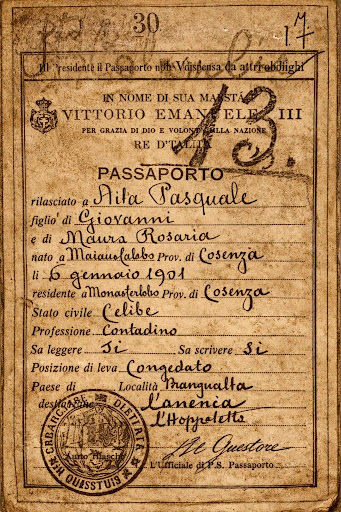 30
17
Il Presidente il Passaporto non Vdispensa da attri obolighi
IN NOME DI SUA MAESTÁ
VITTORIO EMANUELE III
PER GRAZIA DI DIO E VOLONTÀ DELLA NAZIONE
RE D'ITALIA
13.
PASSAPORTO
rilasciato a Aita Pasquale
figlio di Giovanni
e di Maura Rosaria
nato a Prov. di Cosenza
li 6 gennaio 1901
residente a Monasterlobo Prov. di Cosenza
Stato civile Celibe
Professione Contadino
Sa leggere Si Sa scrivere Si
Posizione di leva Congedato
Paese di Località Brangualta
l'anenia
l'Hoppeletto
Il Questore
L'Ufficiale di P.S. Passaporto